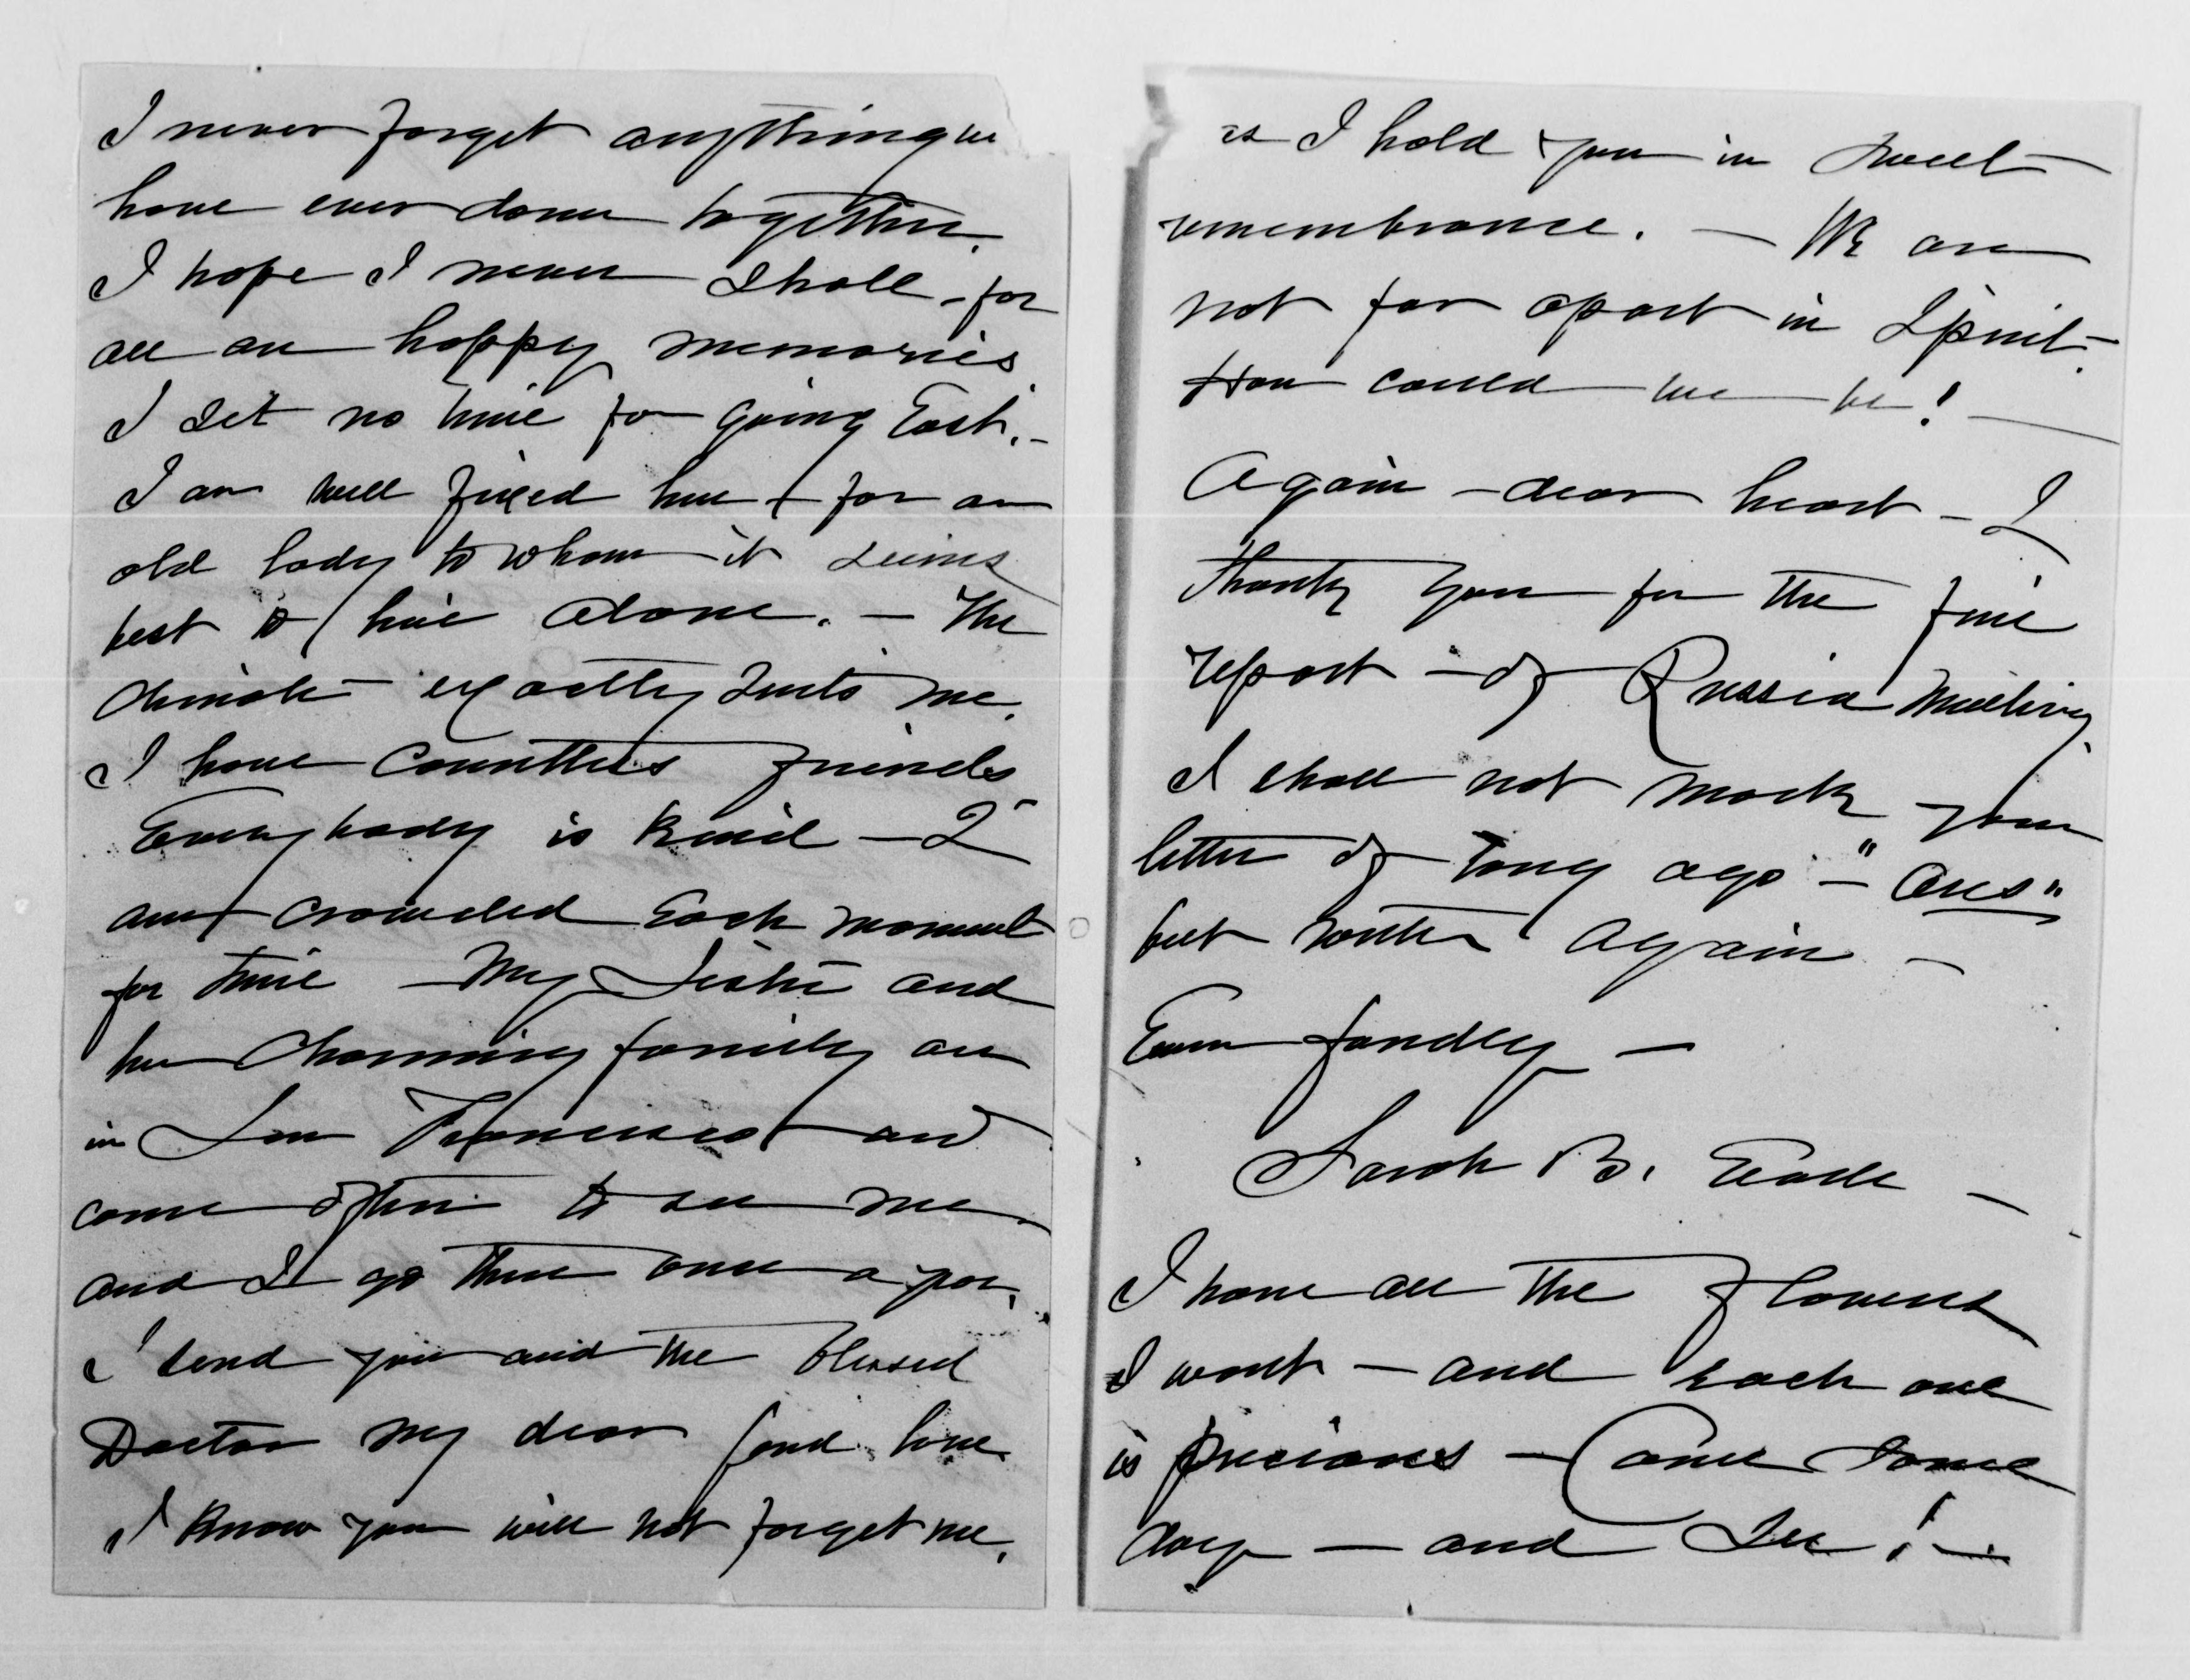 I never forget anything we
have ever done together.
I hope I never shall - for
all are happy memories.
I set no time for going East. -
I am well fixed here + for an
old lady to whom it seems
best to live alone. - The
climate exactly suits me.
I have countless friends
Everybody is kind - I
am crowded each moment
for time - My Sister and
her charming family are
in San Francisco and
come often to see me
and I go there once a year.
I send you and the blessed
Doctor my dear fond love.
I know you will not forget me,
as I hold you in sweet
remembrance. - We are
not far apart in Spirit -
How could we be! -
Again - dear heart - I
thank you for the fine
report - of Russia meeting.
I shall not mark your
letter of long ago - "Ans"
but write again -
Ever fondly -
Sarah B. Earle -
I have all the flowers
I want - and each one
is precious - Come some
day - and See! -